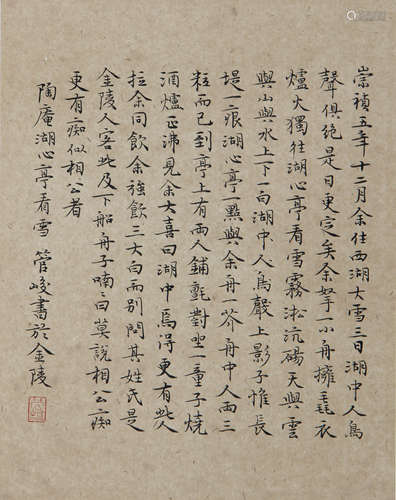 崇禎五年十二月余住西湖大雪三日湖中人鳥
聲俱絕是日更定矣余拏一小舟擁毳衣
爐火獨往湖心亭看雪霧淞沆碭天與雲
與山與水上下一白湖中人鳥聲上影子惟長
堤一痕湖心亭一點與余舟一芥舟中人兩三
粒而已到亭上有兩人鋪氈對坐一童子燒
酒爐正沸見余大喜曰湖中焉得更有此人
拉余同飲余強飲三大白而別問其姓氏是
金陵人客此及下船舟子喃喃曰莫說相公痴
更有痴似相公者
陶庵湖心亭看雪 管峻書於金陵